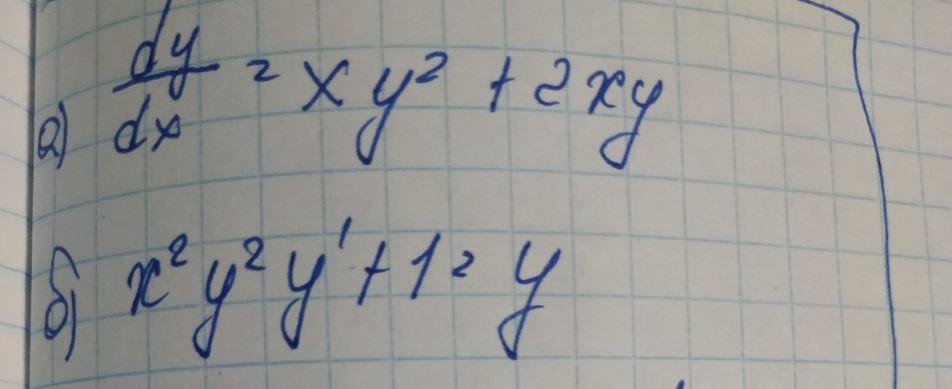 а) dy/dx = xy² + 2xy
б) x²y²y' + 1 = y